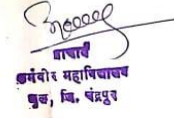 प्राचार्य
कर्मवीर महाविद्यालय
मुल, जि. चंद्रपुर